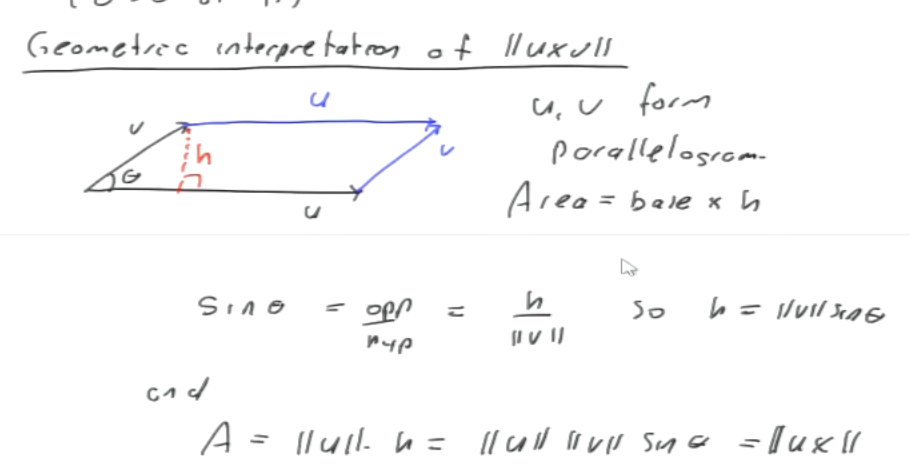 Geometric interpretation of ||uxv||
u
u, v form
v
h
v
parallelogram.
θ
u
Area = base x h
sin θ = opp/hyp = h/||v|| so h = ||v|| sin θ
and
A = ||u||. h = ||u|| ||v|| sin θ = ||ux||